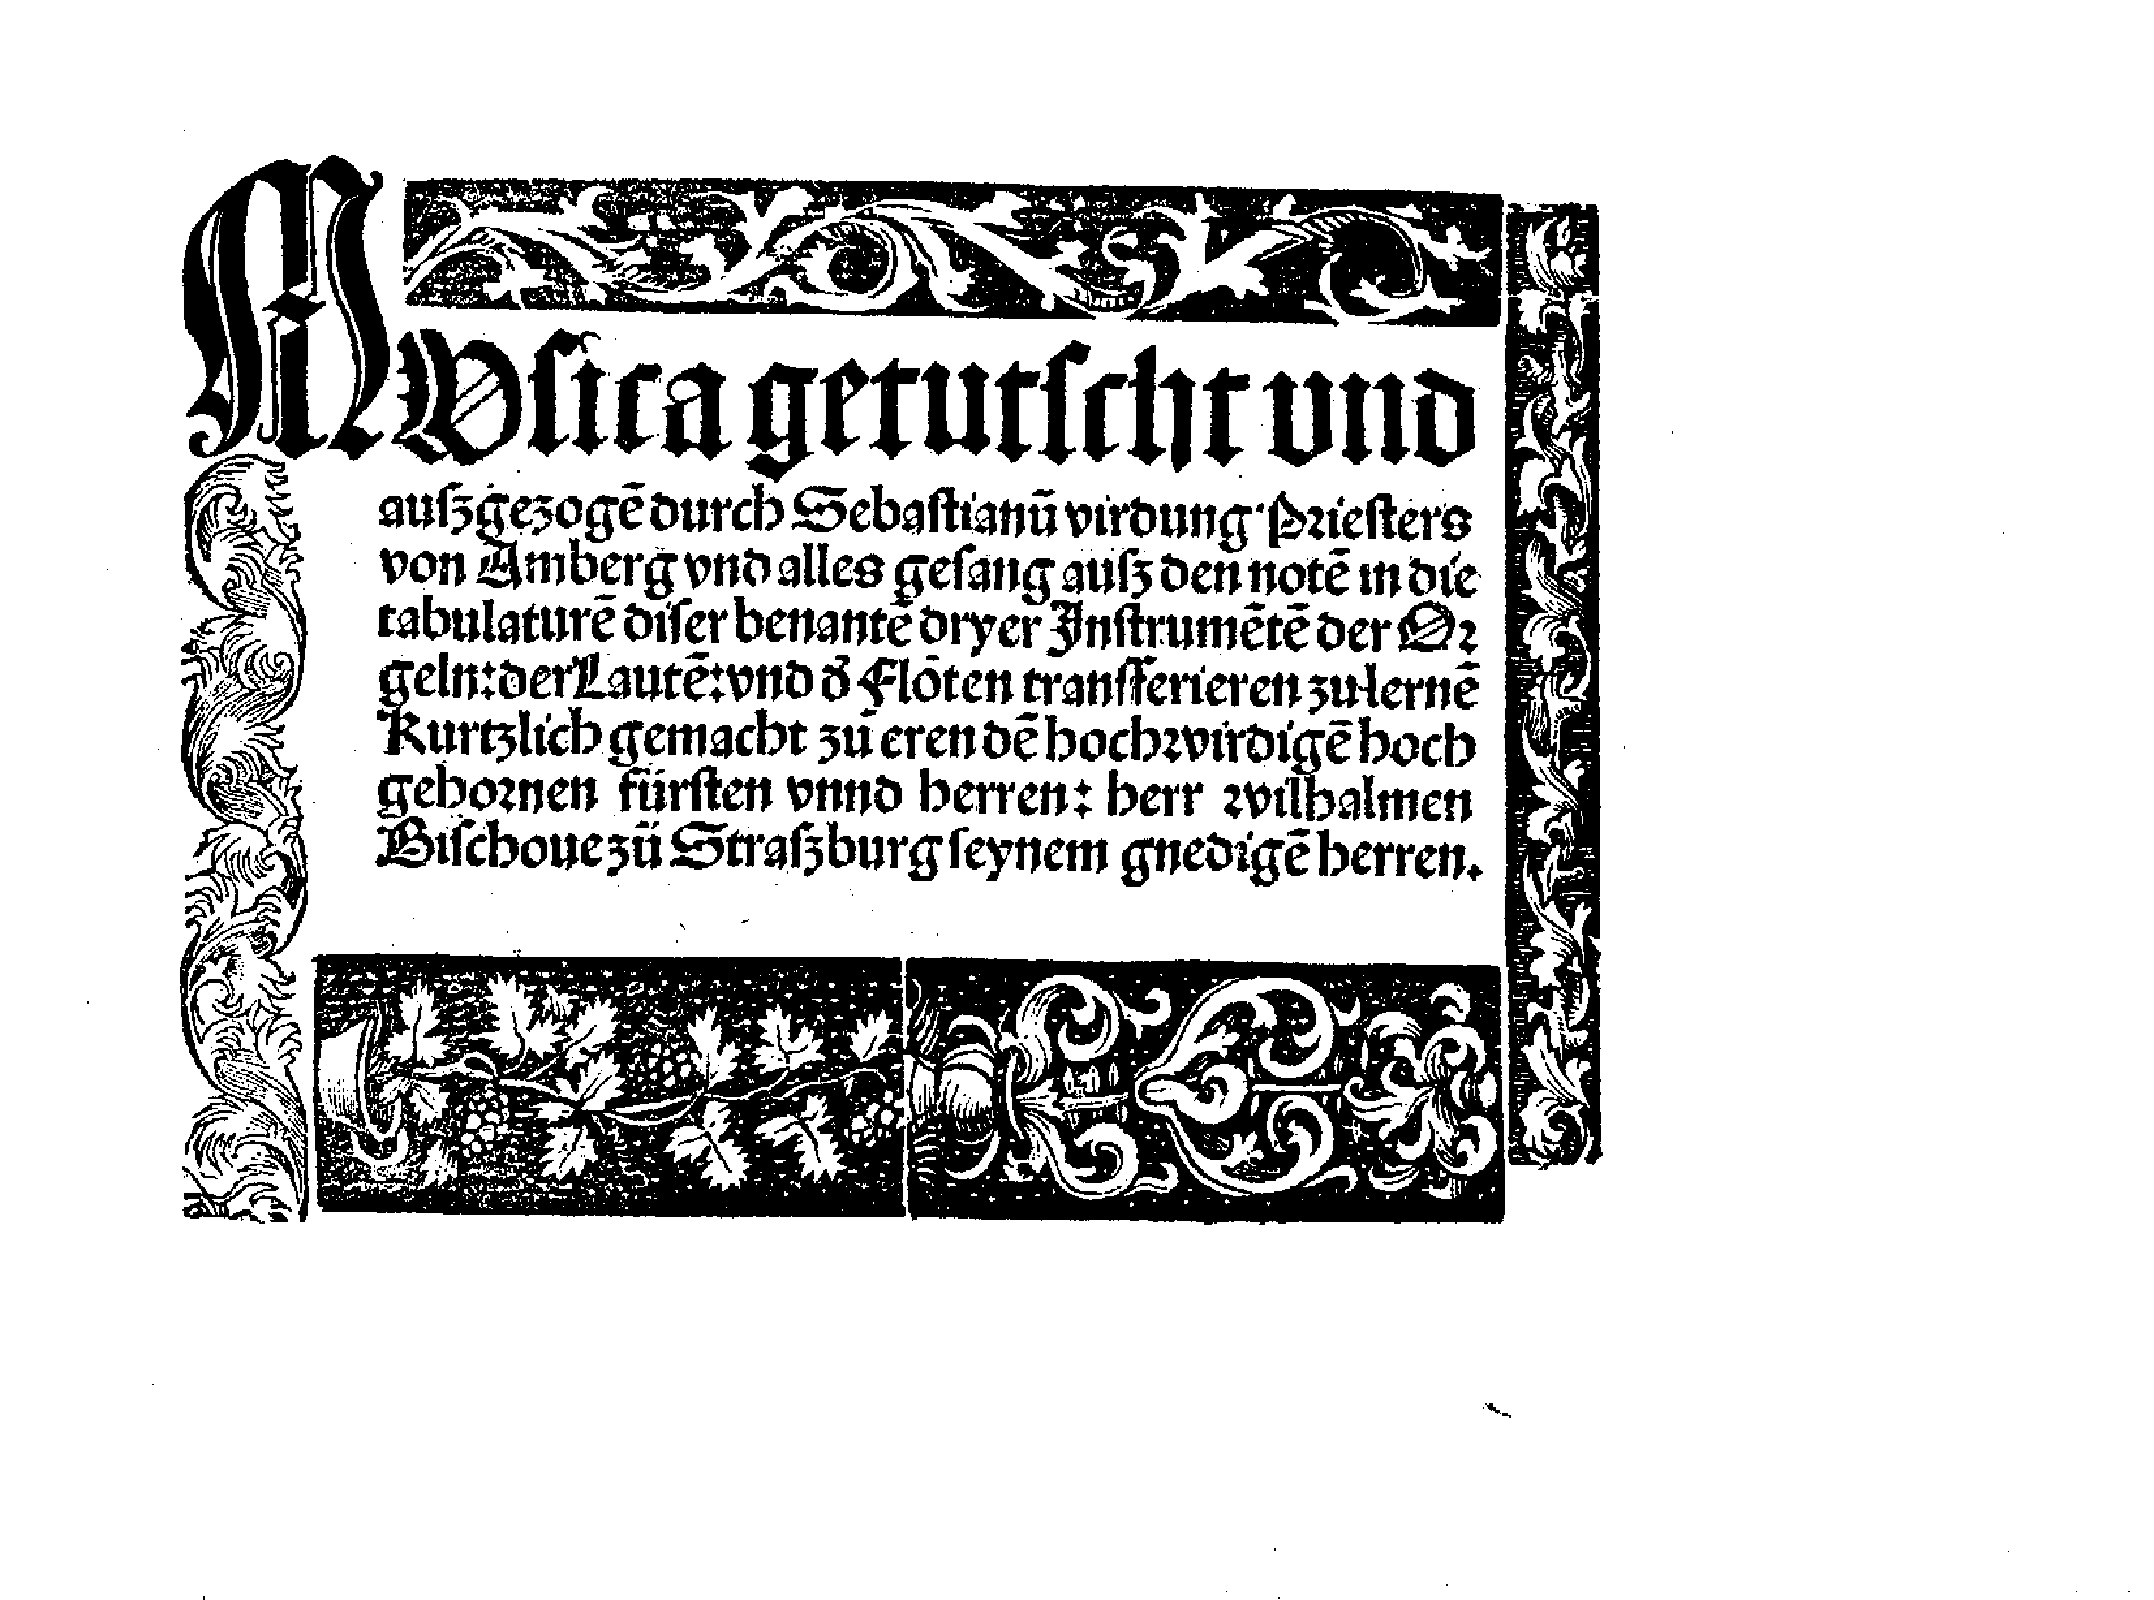 MUſica getutſcht vnd
auſzgezogē durch Sebaſtianū virdung· Prieſters
von Amberg vnd alles geſang auſz den notē in die
tabulaturē diſer benantē dryer Inſtrumētē der Or
geln: der Lautē: vnd đ Flöten tranſferieren zu lernē
Kurtzlich gemacht zů eren dē hochwirdigē hoch
gebornen fürſten vnnd herren: herr wilhalmen
Biſchoue zů Straſzburg ſeynem gnedigē herren.